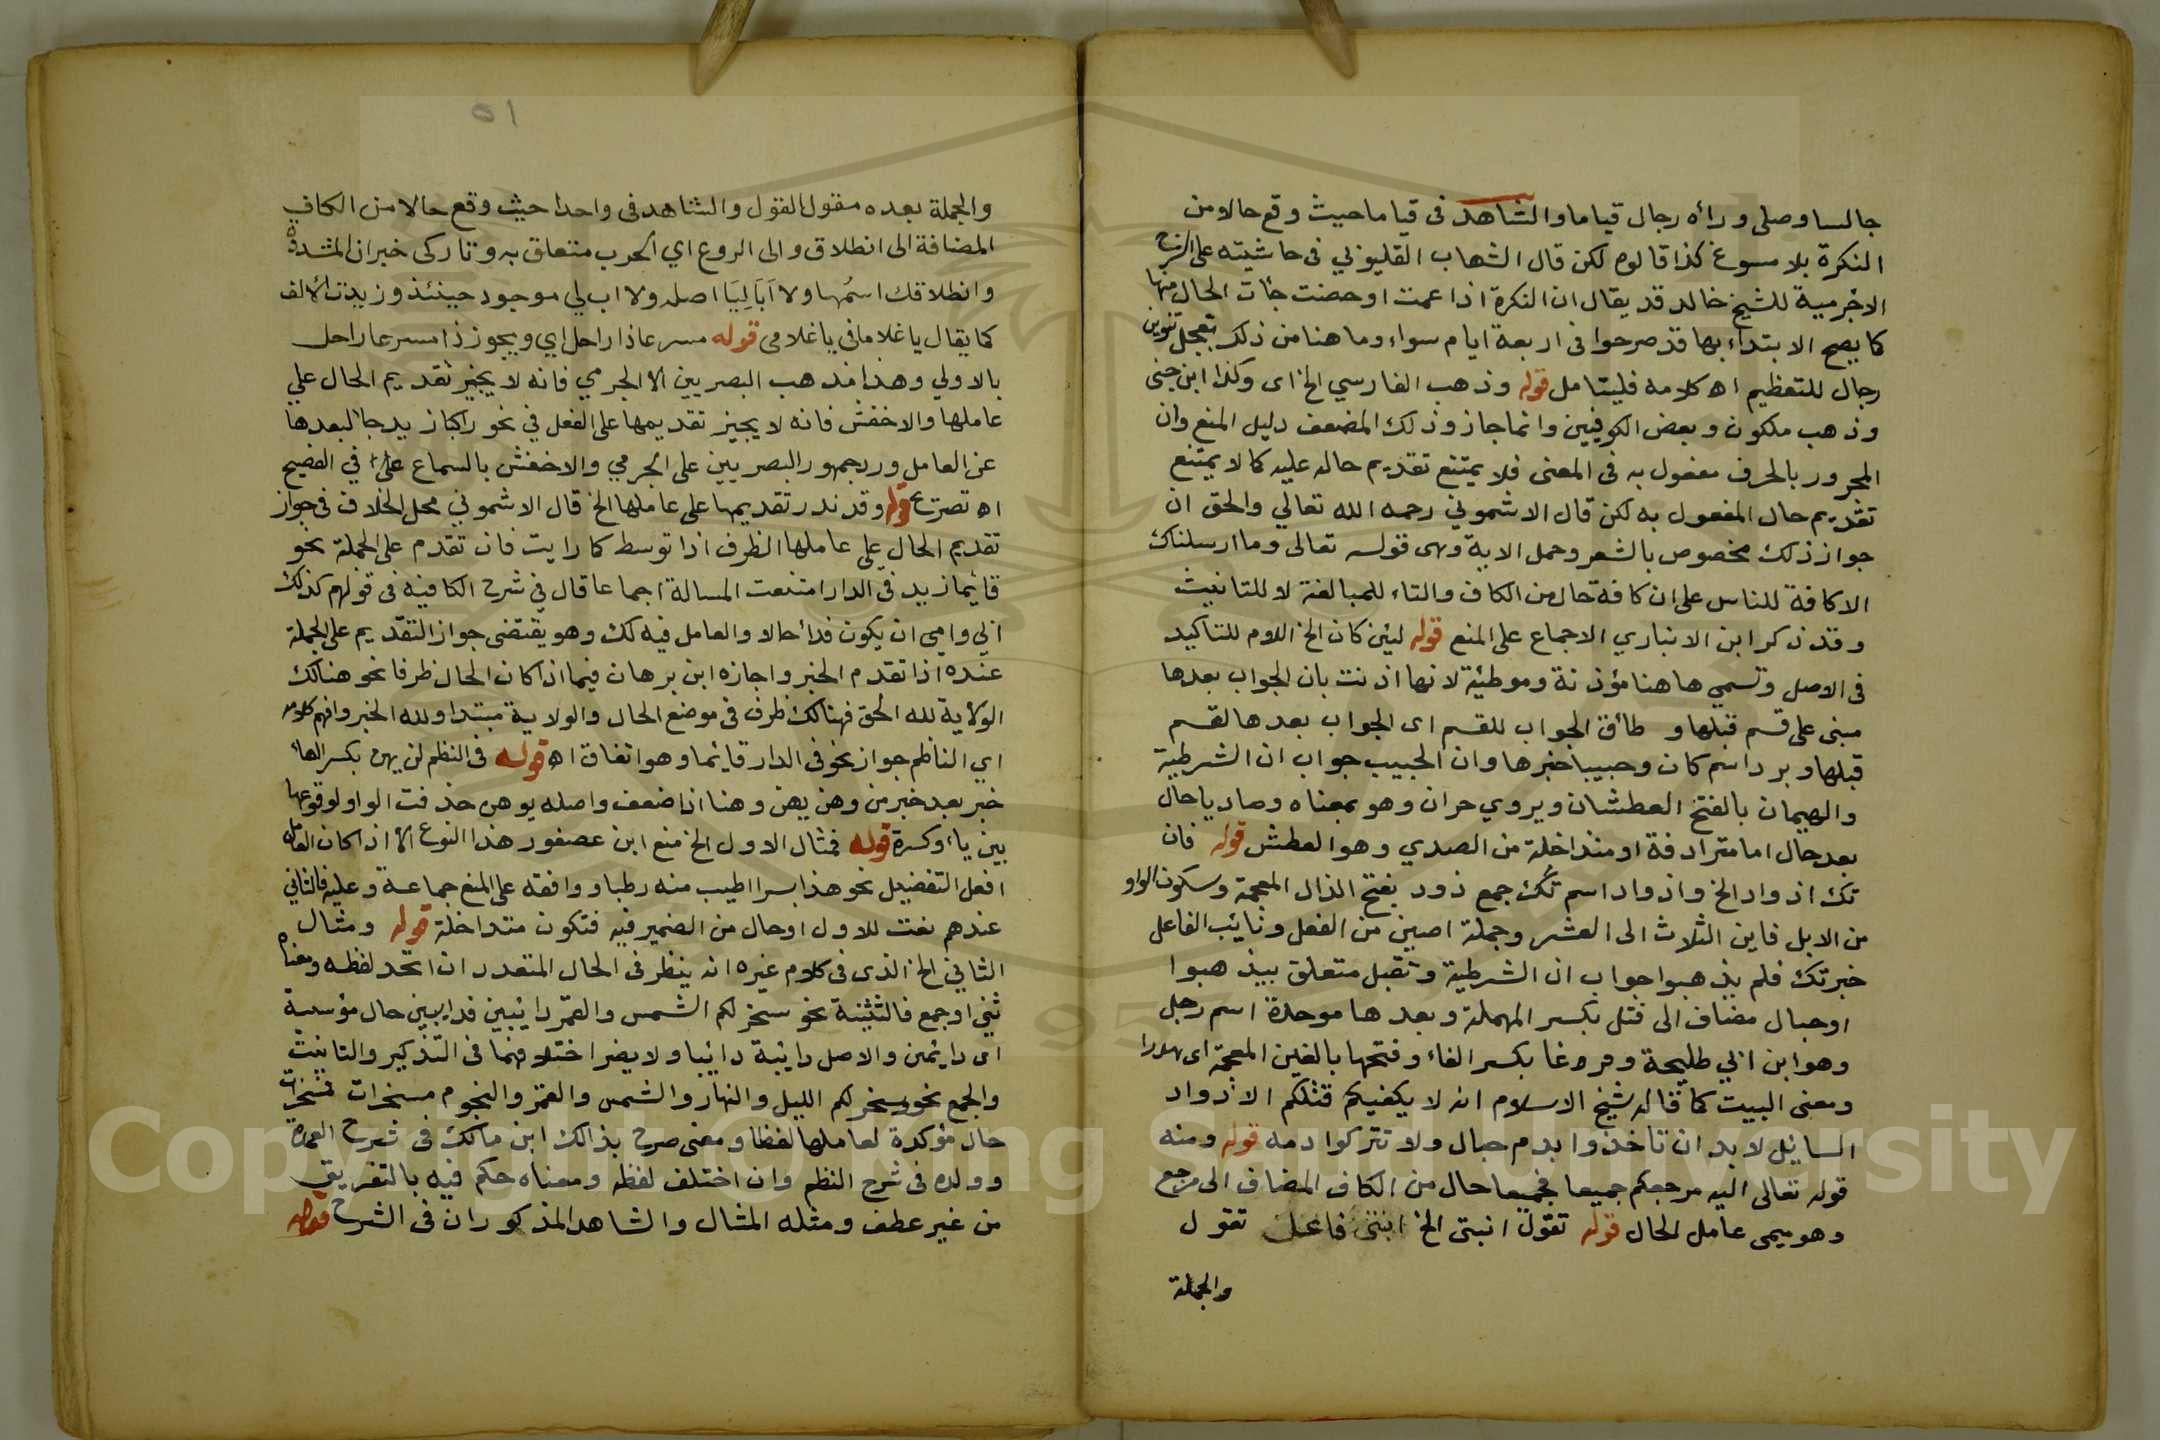 جالسا وصلى وراه رجال قياما والشاهد في قياما حيث وقع حالا من
النكرة بلا مسوغ كذا قالوه لكن قال الشهاب القليوبي في حاشيته على الشرح
الاجرمية للشيخ خالد قد يقال ان النكرة اذا عمت او خصت جأت الحال منها
كما يصح الابتداء بها قد صرحوا في اربعة ايام سواء وما هنا من ذلك بجعل تنوين
رجال للتعظيم اه كلامه فليتامل قوله وذهب الفارسي الخ اى وكذا ابن جنى
وذهب ملكون وبعض الكوفيين وانما جاز وذلك المضعف دليل المنع وان
المجرور بالحرف مفعول به في المعنى فلا يمتنع تقديم حاله عليه كما لا يمتنع
تقديم حال المفعول به لكن قال الاشموني رحمه الله تعالي والحق ان
جواز ذلك مخصوص بالشعر وحمل الاية وهى قوله تعالى وما ارسلناك
الا كافة للناس على ان كافة حال من الكاف والتاء للمبالغة لا للتانيث
وقد ذكر ابن الانباري الاجماع على المنع قوله لئن كان الخ اللام للتاكيد
في الاصل وتسمي ها هنا مؤذنة وموطئة لانها اذنت بان الجواب بعدها
مبنى على قسم قبلها و طأة الجواب للقسم اى الجواب بعدها لقسم
قبلها وبرد اسم كان وحبيبا خبرها وان الحبيب جواب ان الشرطية
والهيمان بالفتح العطشان ويروي حران وهو بمعناه وصاديا حال
بعد حال اما مترادفة او متداخلة من الصدي وهو العطش قوله فان
تك اذواد الخ واذواد اسم تك جمع ذود بفتح الذال المعجمة وسكون الواو
من الابل فابين الثلاث الى العشر وجملة اصبن من الفعل ونائب الفاعل
خبر تك فلم يذهبوا جواب ان الشرطية وتقبل متعلق بيذهبوا
او حبال مضاف الى قتل بكسر المهملة وبعدها موحدة اسم رجل
وهو ابن ابي طليحة وفرغا بكسر الفاء وفتحها بالغين المعجمة اى هدرا
ومعنى البيت كما قاله شيخ الاسلام انه لا يكفيكم قتلكم الاذواد
السائل لا بد ان تاخذوا بدم حبال ولا تتركوا دمه قوله ومنه
قوله تعالى اليه مرجعكم جميعا فجميعا حال من الكاف المضاف الى مرجع
وهو ميمى عامل الحال قوله تقول انبتى الخ ابنتى فاعل تقول
والجملة
٥١
والجملة بعده مقول القول والشاهد في واحدا حيث وقع حالا من الكاف
المضافة الى انطلاق والى الروع اي الحرب متعلق به وتاركى خبر ان المشددة
وانطلاقك اسمها ولا اباليا اصله ولا اب لي موجود حينئذ وزيدت الالف
كما يقال يا غلاما في يا غلامى قوله مسرعا ذا راحل اي ويجوز ذا مسرعا راحل
بالاولي وهذا مذهب البصريين الا الجرمي فانه لا يجيز تقديم الحال علي
عاملها والاخفش فانه لا يجيز تقديمها على الفعل في نحو راكبا زيد جأ لبعدها
عن العامل ورد جمهور البصريين على الجرمي والاخفش بالسماع علي في الفصيح
اه تصريح قوله وقد ندر تقديمها على عاملها الخ قال الاشموني محل الخلاف في جواز
تقديم الحال علي عاملها الظرف اذا توسط كما رايت فان تقدم على الجملة نحو
قائما زيد في الدار امتنعت المسالة اجماعا قال في شرح الكافيه في قولهم كذلك
ابي وامي ان يكون فدأ حالا والعامل فيه لك وهو يقتضى جواز التقديم على الجملة
عنده اذا تقدم الخبر واجازه ابن برهان فيما اذا كان الحال ظرفا نحو هنالك
الولاية لله الحق فهنالك ظرف في موضع الحال والولاية مبتدا ولله الخبر وافهم كلامه
اي الناظم جواز نحو في الدار قائما وهو اتفاق اه قوله في النظم لن يهن بكسر الهاء
خبر بعد خبر من وهن يهن وهنا اذا ضعف واصله يوهن حذفت الواو لوقوعها
بين ياء وكسرة قوله فمثال الاول الخ منع ابن عصفور هذا النوع الا اذا كان العامل
افعل التفضيل نحو هذا بسرا اطيب منه رطبا ووافقه على المنع جماعة وعليه فالثاني
عندهم نعت للاول او حال من الضمير فيه فتكون متداخلة قوله ومثال
الثاني الخ الذى في كلام غيره انه ينظر في الحال المتعدد ان اتحد لفظه ومعناه
ثني او جمع فالتثنية نحو سخر لكم الشمس والقمر دائبين فدايبين حال مؤسسة
اى دائمين والاصل دايبة دائبا ولا يضر اختلافهما في التذكير والتانيث
والجمع نحو وسخر لكم الليل والنهار والشمس والقمر والنجوم مسخرات فمسخرات
حال مؤكدة لعاملها لفظا ومعنى صرح بذالك ابن مالك في شرح العمدة
وولده في شرح النظم وان اختلف لفظه ومعناه حكم فيه بالتفريق
من غير عطف ومثله المثال والشاهد المذكوران في الشرح قوله
Copyright © King Saud University
1957